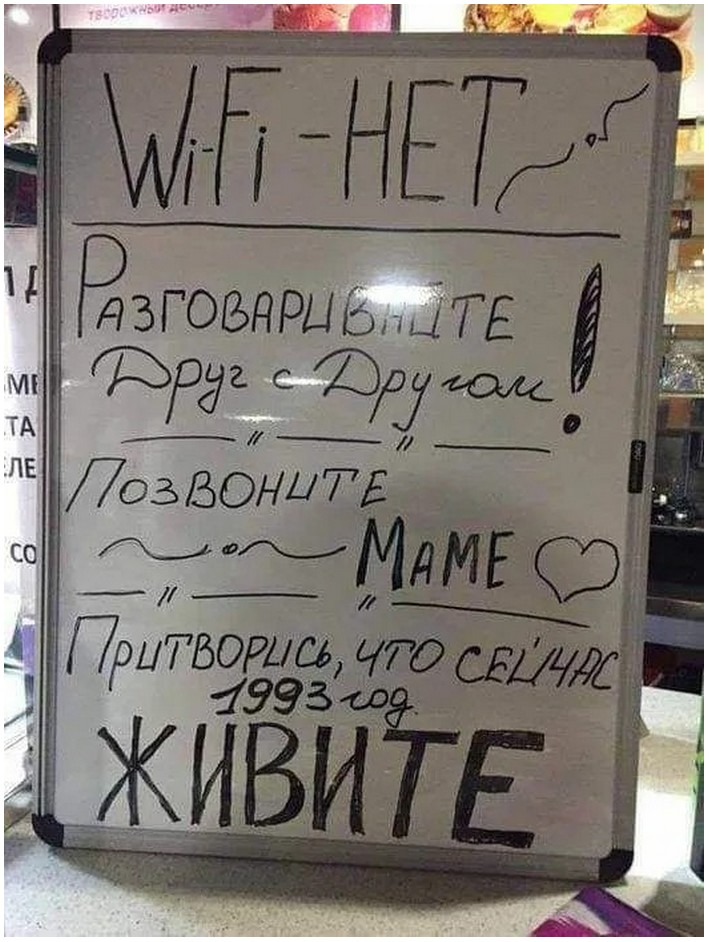 творожный десерт
Wi-Fi - НЕТ
Разговаривайте
Друг с Другом!
Позвоните
Маме
Притворись, что сейчас
1993 год.
ЖИВИТЕ